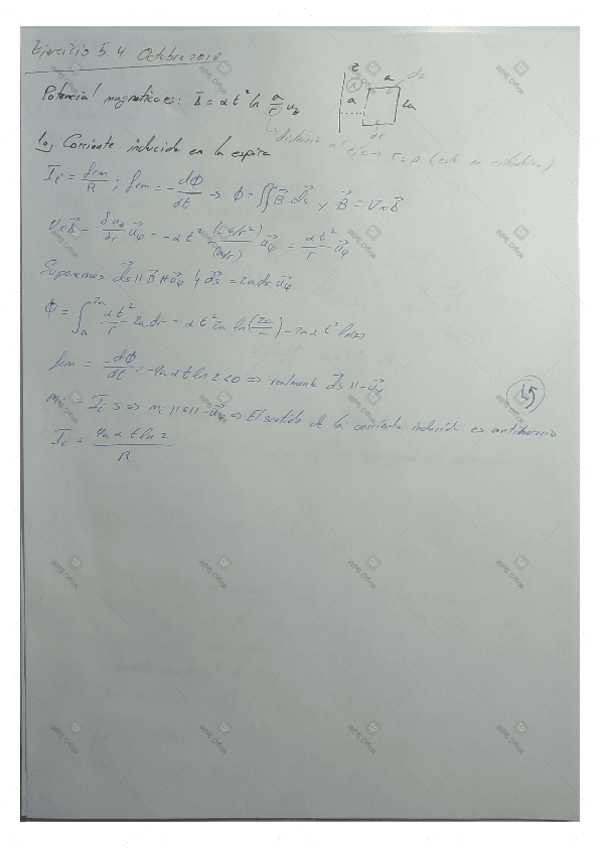 Ejercicio 5.4 Octubre 2018
Potencial magnetico es: B = α t² ln a/r u_z
z a ds
a 2a
dr
distancia al eje → r = ρ (
a) Corriente inducida en la espira
I_i = fem/R ; fem = -dΦ/dt → Φ = ∬ B · ds y B = ∇×B
∇×B = -δa_z/δr u_φ = -αt² (-a/r²)/(a/r) u_φ = αt²/r u_φ
Suponemos ds || B || u_φ y ds = 2a dr u_φ
Φ = ∫_a^2a αt²/r 2a dr = αt² 2a ln(2a/a) = 2aαt² ln(2)
fem = -dΦ/dt = -4aαt ln 2 < 0 => realmente ds || -u_φ
I_i => || -u_φ => El sentido de la corriente inducida es antihorario
I_i = 4aαt ln 2 / R
45
WPS Office